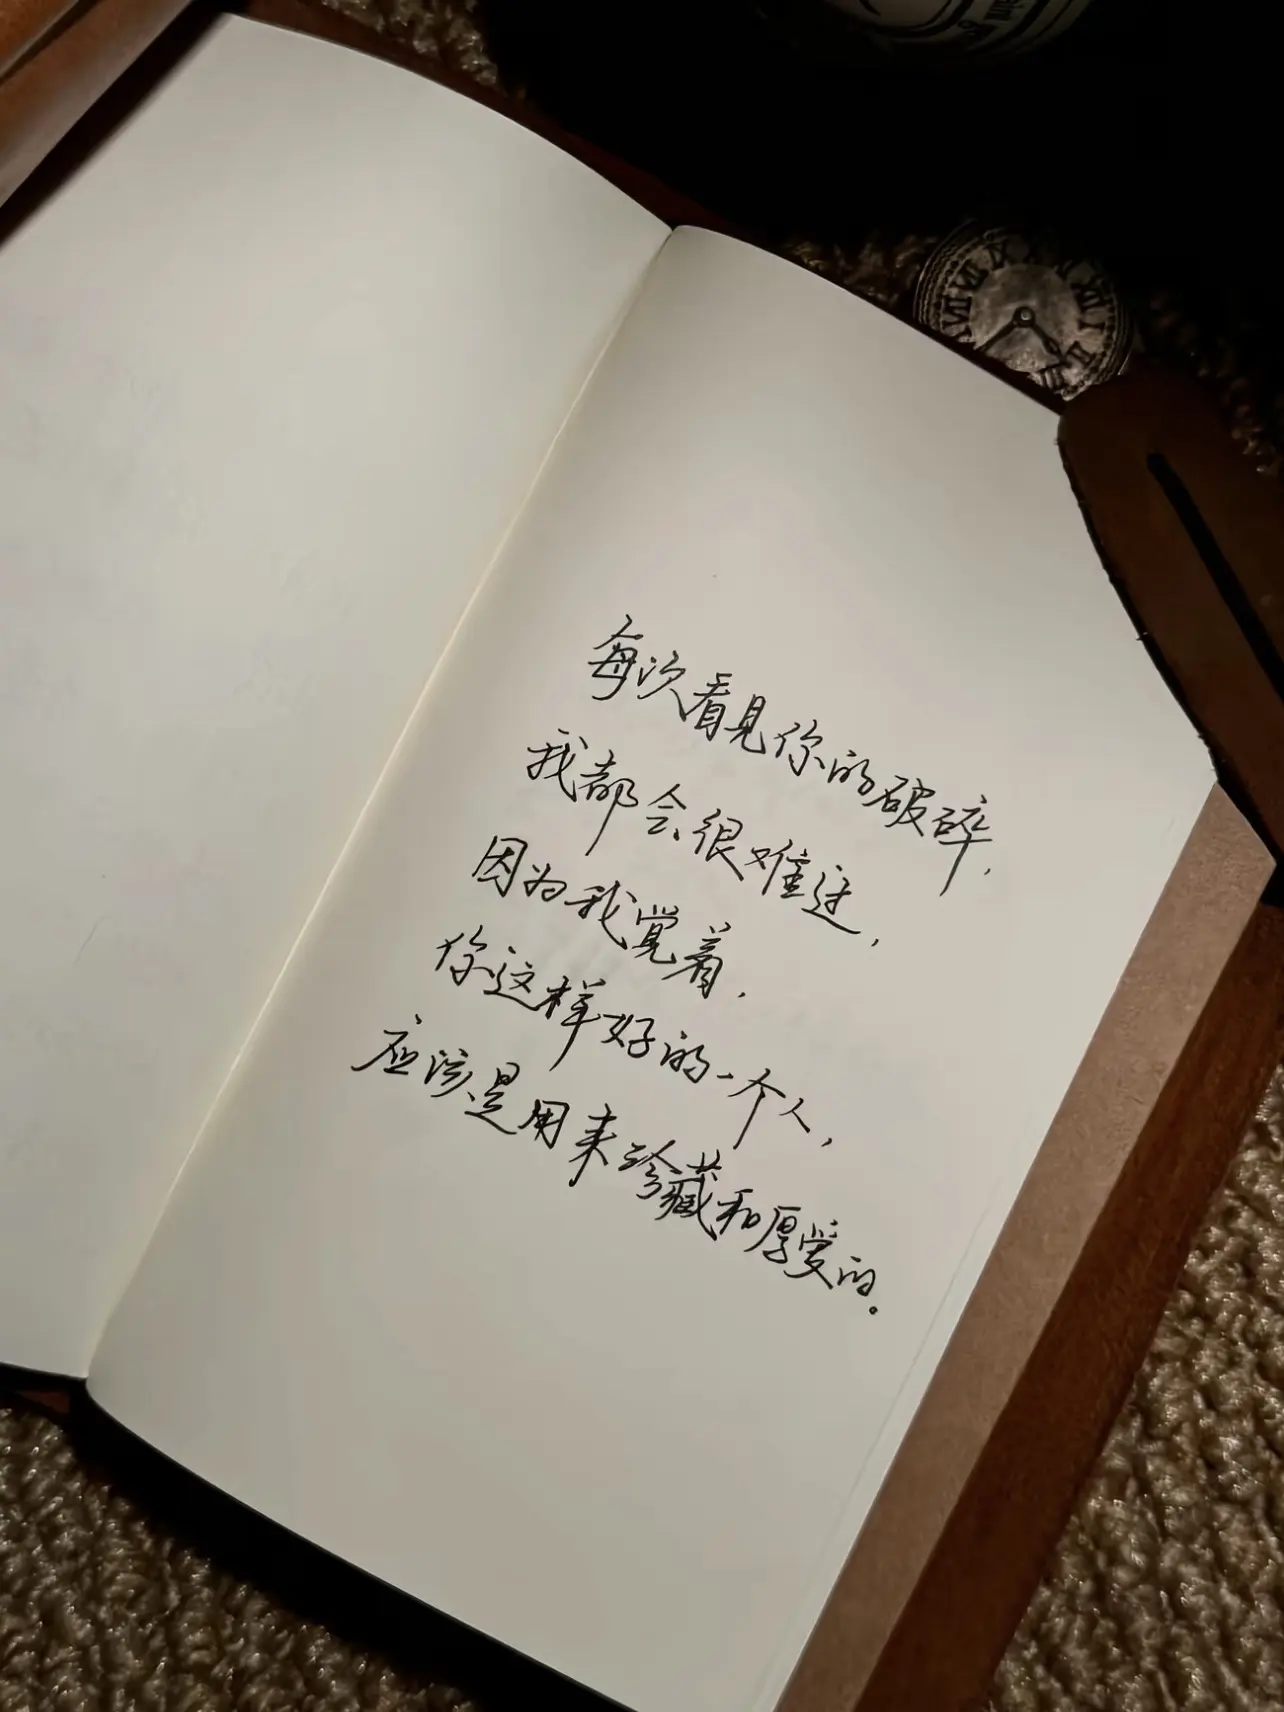 每次看见你的破碎，
我都会很难过，
因为我觉着，
你这样好的一个人，
应该是用来珍藏和厚爱的。